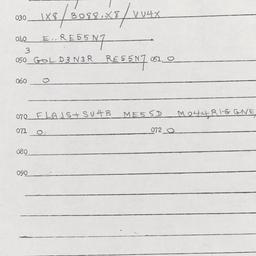 030 1X8/8088.X8/VU4X
040 E..RE55N7
3
050 GOLD3N3R RE55N7 051 0
060 0
070 FLA15+SU4B ME55D
071 0. 072 0
080
090